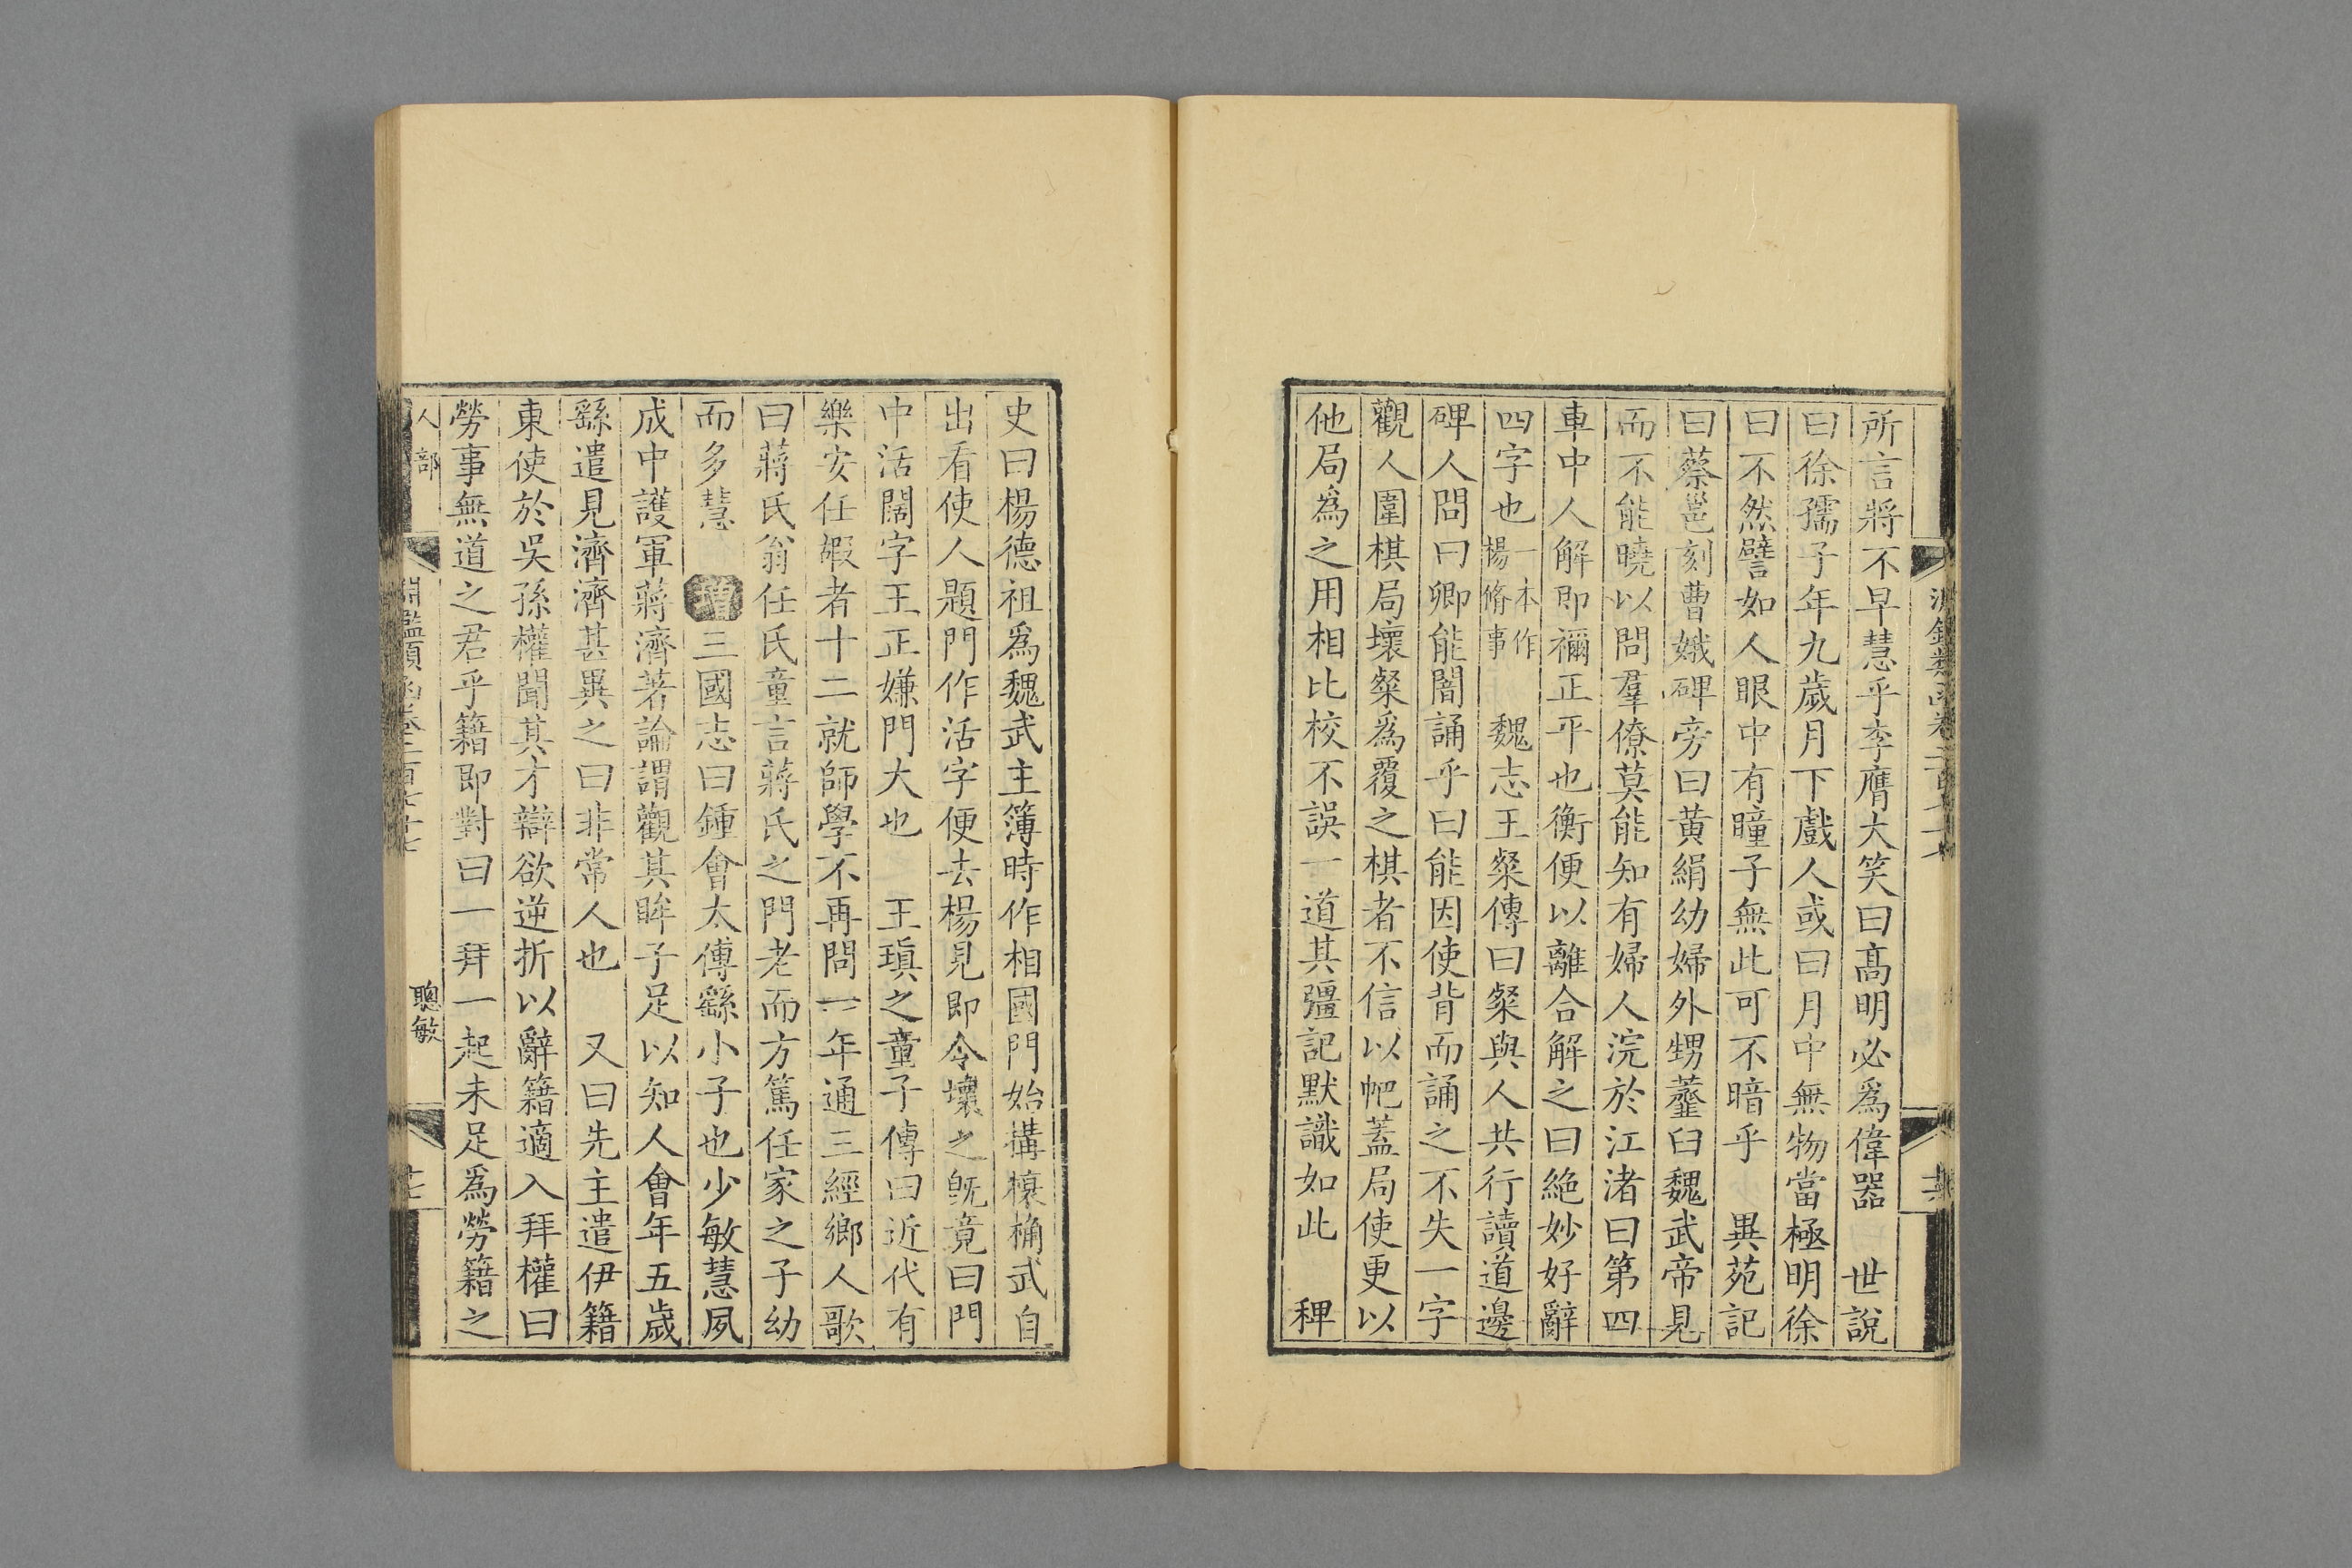 所言將不早慧乎李膺大笑曰高明必爲偉器　世說
曰徐孺子年九歲月下戲人或曰月中無物當極明徐
曰不然譬如人眼中有瞳子無此可不暗乎　異苑記
曰蔡邕刻曹娥碑旁曰黃絹幼婦外甥虀臼魏武帝見
而不能曉以問羣僚莫能知有婦人浣於江渚曰第四
車中人解即禰正平也衡便以離合解之曰絕妙好辭
四字也一本作楊脩事　魏志王粲傳曰粲與人共行讀道邊
碑人問曰卿能闇誦乎曰能因使背而誦之不失一字
觀人圍棋局壞粲爲覆之棋者不信以帊蓋局使更以
他局爲之用相比校不誤一道其彊記默識如此　稗
史曰楊德祖爲魏武主簿時作相國門始搆榱桷武自
出看使人題門作活字便去楊見即令壞之旣竟曰門
中活闊字王正嫌門大也　王瑱之童子傳曰近代有
樂安任嘏者十二就師學不再問一年通三經鄉人歌
曰蔣氏翁任氏童言蔣氏之門老而方篤任家之子幼
而多慧　增三國志曰鍾會太傅繇小子也少敏慧夙
成中護軍蔣濟著論謂觀其眸子足以知人會年五歲
繇遣見濟濟甚異之曰非常人也　又曰先主遣伊籍
東使於吳孫權聞其才辯欲逆折以辭籍適入拜權曰
勞事無道之君乎籍即對曰一拜一起未足爲勞籍之
人部　淵鑑類函卷二百七十七　聰敏　十七